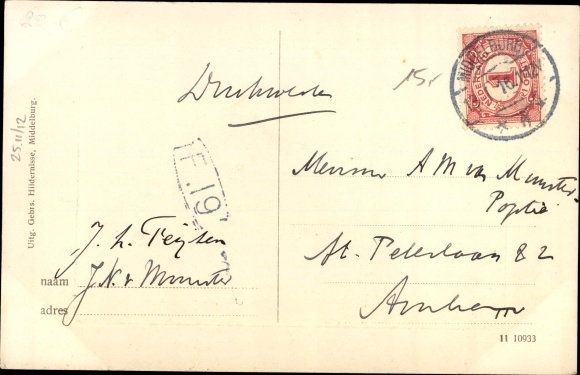 25.11/12
Uitg. Gebrs. Hildernisse, Middelburg.
Drukwerk
F.19
J. L.
naam J. N. v Munster
adres
15,-
MIDDELBURG
NEDERLAND
1
Mevrouw A M van Munster-
Poptie
St. Peterlaan 82
Arnhem
11 10933